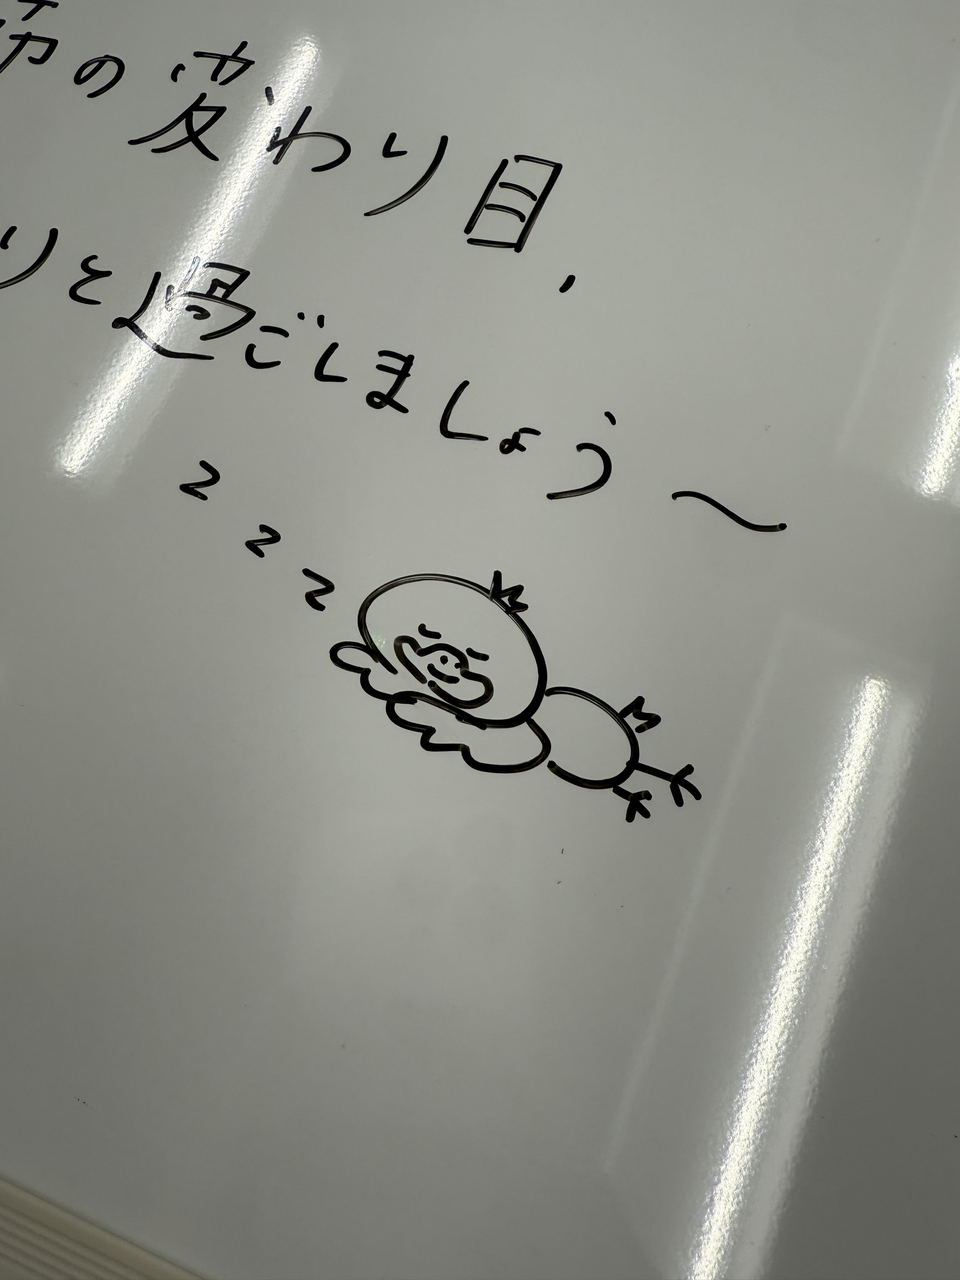 節の変わり目,
りと過ごしましょう〜
z
z
z